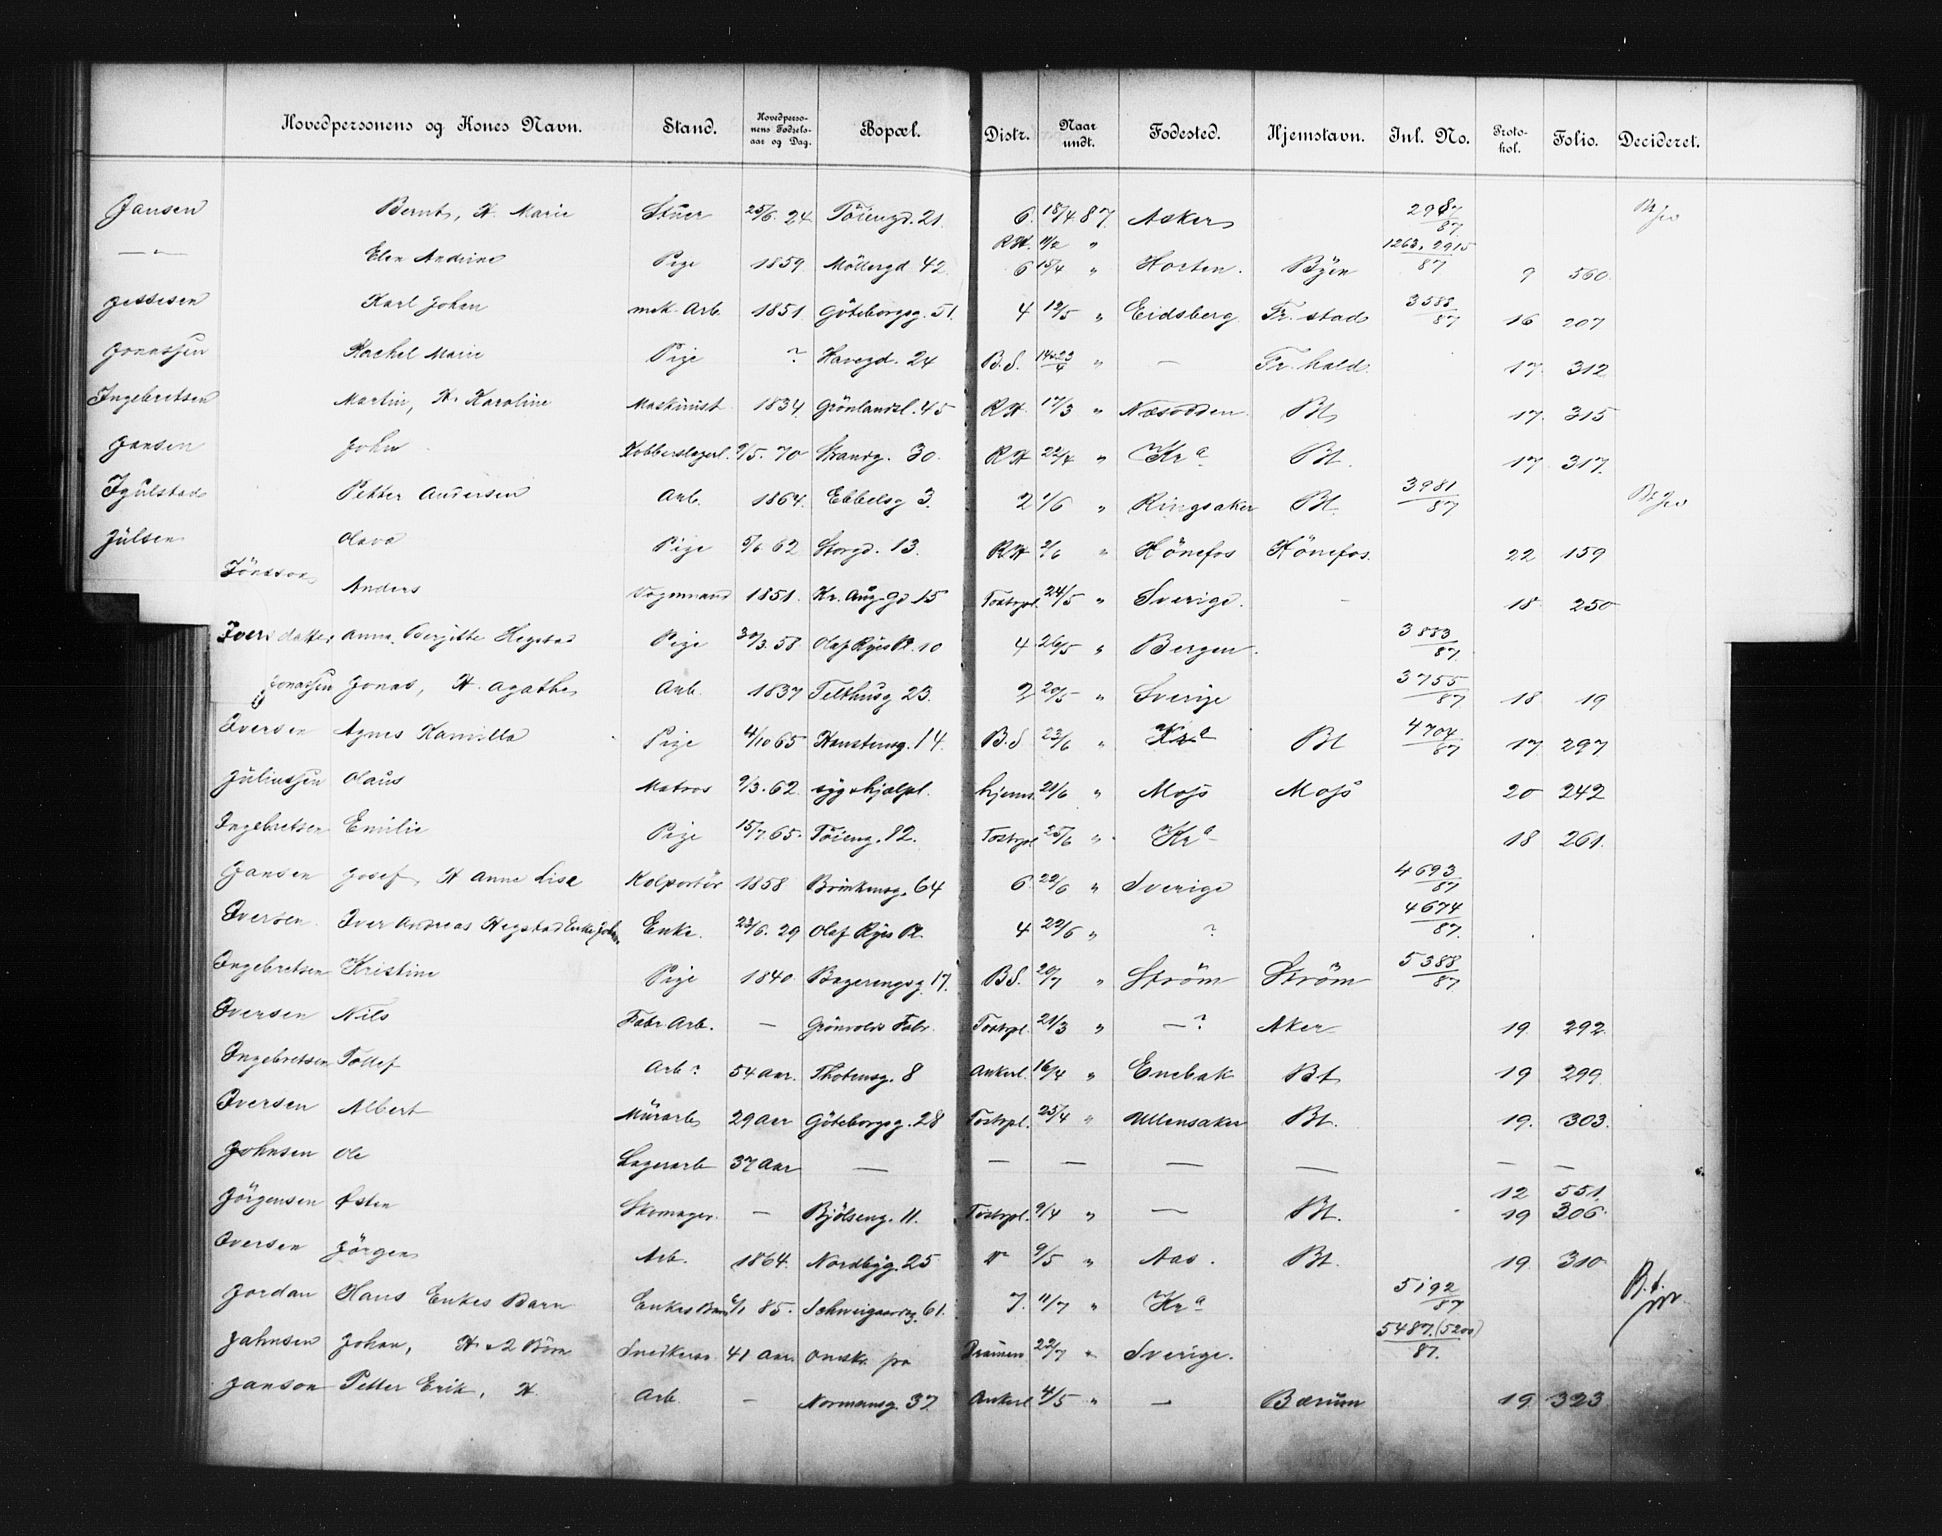 Hovedpersonens og Kones Navn. Stand. Hovedpersonens Fødselsaar og Dag. Bopæl. Distr. Naar undt. Fødested. Hjemstavn. Inl. No. Protokol. Folio. Decideret.
Jansen Bernt, H. Marie Stuer 25/6 24 Töiengd. 21. 6. 18/4 87. Asker 2987/87
— " — Elen Andrine Pige 1859 Möllergd 42. R.H. 11/2 " 6 15/4 " Horten. Byen 1263, 2915/87 9 560.
Jessesen Karl Johan mek. Arb. 1851. Göteborgsg. 51. 4 12/5 " Eidsberg. Fr. stad 3583/87 16 207
Jonassen Rachel Marie Pige ? Havegd. 24 B.S. " — Fr. hald. 17. 312
Ingebretsen Martin, H. Karoline Maskinist 1834. Grönlandsl. 45 R.H. 17/3 " Næsodden. Bt. 17. 315
Jansen John Kobberslagerl. 9/5. 70 Strandg. 30. R.H 22/4 " Kra Bt. 17. 317.
Igulstad Petter Andersen Arb. 1864. Ebbelsg 3. 2 1/6 " Ringsaker Bt. 3981/87
Julsen Olava Pige 5/6 62 Storgd. 13. R.H 2/6 " Hönefos Hönefos. 22 159
Jönsson Anders Vognmand 1851. Kr. Aug. gd 15 Tostrpl. 24/5 " Sverige. - 18. 250
Iversdatter Anna Berjitte Hegstad Pige 30/3. 58. Olaf Ryes Pl. 10 4 26/5 " Bergen. 3883/87.
Jonassen Jonas, H. Agathe Arb. 1837 Telthusg 23. 2 20/5 " Sverige 3755/87 18 19
Iversen Agnes Kamilla Pige 4/10 65 Hansteensg. 14. B.S 23/6 " Kra Bt 4704/87 17. 297.
Juliussen Olaus Matros 9/3. 62. syg o hjælpl. hjems. 21/6 " Moss Moss 20 242
Ingebretsen Emilie Pige 15/7 65. Töieng. 82. Tostrpl 25/6 " Kra 18 261.
Jansen Josef, H Anne Lise Kolportör 1858 Brinkensg. 64 6. 22/6 " Sverige 4693/87
Iversen. Iver Andreas Hegstad Enke Enke. 23/6. 29 Olaf Ryes Pl. 4 22/6 " ? 4674/87.
Ingebretsen Kristine Pige 1840. Vagerengsg 17. B.S. 20/7 " Ström Ström 5388/87.
Iversen Nils Fabr Arb. — Grönvolds Fabr. Tostrpl. 21/3 " — ? Aker 19. 292.
Ingebretsen Tollef Arb ? 54 Aar. Thotensg. 8 Ankerl. 16/4 " Enebak Bt 19 299.
Iversen Albert Murarb 29 Aar Göteborgsg. 28 Tostrpl. 25/4 " Ullensaker Bt. 19. 303.
Johnsen Ole Lagerarb 37 Aar — — — — — — —
Jörgensen Østen Skomager. — Bjölseng. 11. Tostrpl. 9/4 " — Bt. 12 551. 19 306.
Iversen Jörgen Arb. 1864. Nordbyg. 25 " 9/5 " Aas. Bt. 19. 310.
Jordan Hans Enkes Barn Enkes Barn 6/1 85. Schweigaardsg. 61. 7. 11/7 " Kra 5192/87 B.t.
Jahnsen Johan, H. o 2 Börn Snedkersv. 41 Aar. Drammen 22/7 " Sverige. 5487. (5200)/87.
Janson Petter Erik, H. Arb. — Normansg. 37 Ankerl 4/5 " — Bærum 19. 323.